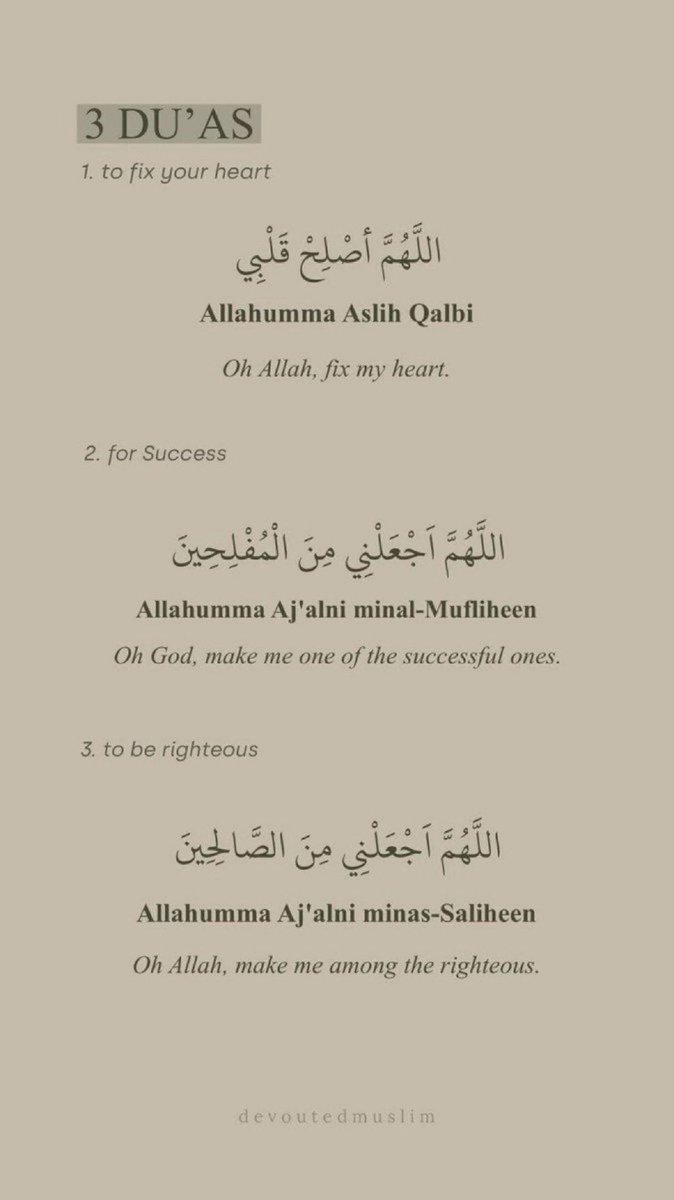 3 DU’AS
1. to fix your heart
اللَّهُمَّ أصْلِحْ قَلْبِي
Allahumma Aslih Qalbi
Oh Allah, fix my heart.
2. for Success
اللَّهُمَّ اَجْعَلْنِي مِنَ الْمُفْلِحِينَ
Allahumma Aj'alni minal-Mufliheen
Oh God, make me one of the successful ones.
3. to be righteous
اللَّهُمَّ اَجْعَلْنِي مِنَ الصَّالِحِينَ
Allahumma Aj'alni minas-Saliheen
Oh Allah, make me among the righteous.
devoutedmuslim